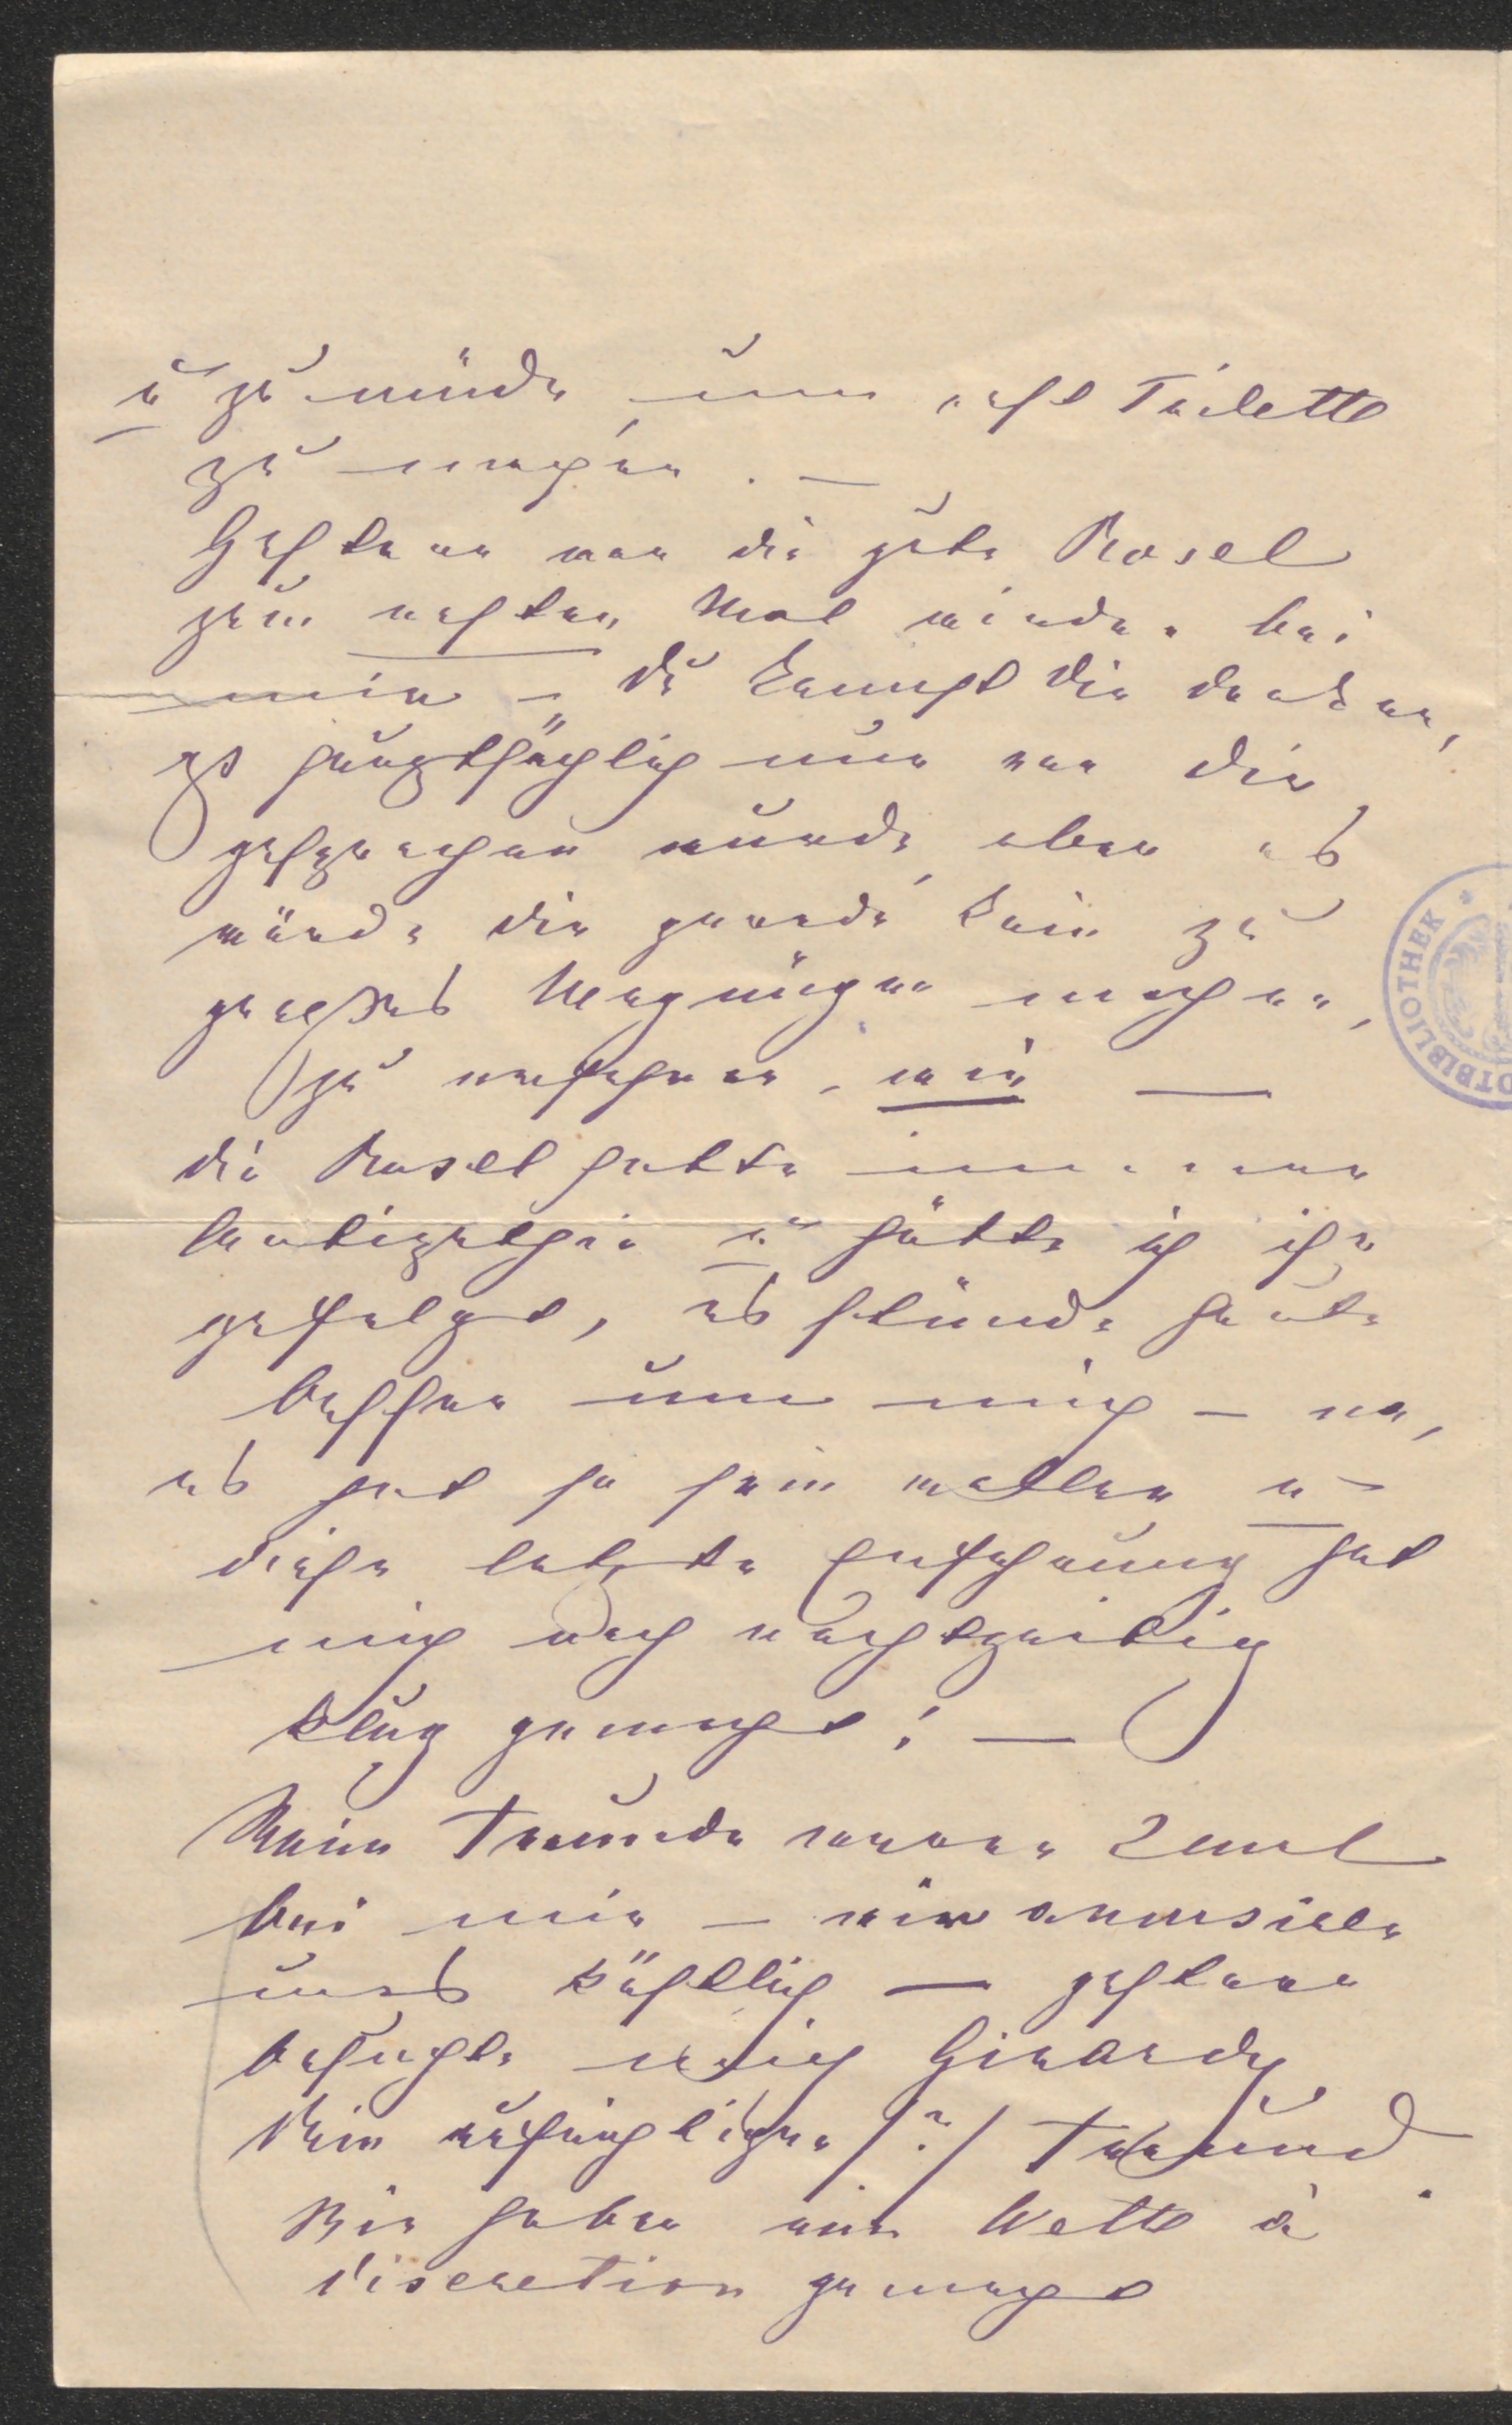 u zu müde, um erst Toilette
zu machen. —
Gestern war die gute Rosel
zum ersten Mal wieder bei
mir – Du kannst Dir denken,
daß hauptsächlich nur von Dir
gesprochen wurde, aber es
würde Dir gerade kein zu
großes Vergnügen machen,
zu erfahren, wie —
die Rosel hatte immer
Antipathie u hätte ich ihr
gefolgt, es stünde heute
besser um mich – na,
es hat so sein wollen u
diese letzte Erfahrung hat
mich noch rechtzeitig
klug gemacht! —
Meine Freunde waren 2 mal
bei mir – wir amusieren
uns köstlich — gestern
besuchte mich Girardi,
Dein aufrichtiger /?/ Freund.
Wir haben eine Wette à
discretion gemacht
BIBLIOTHEK